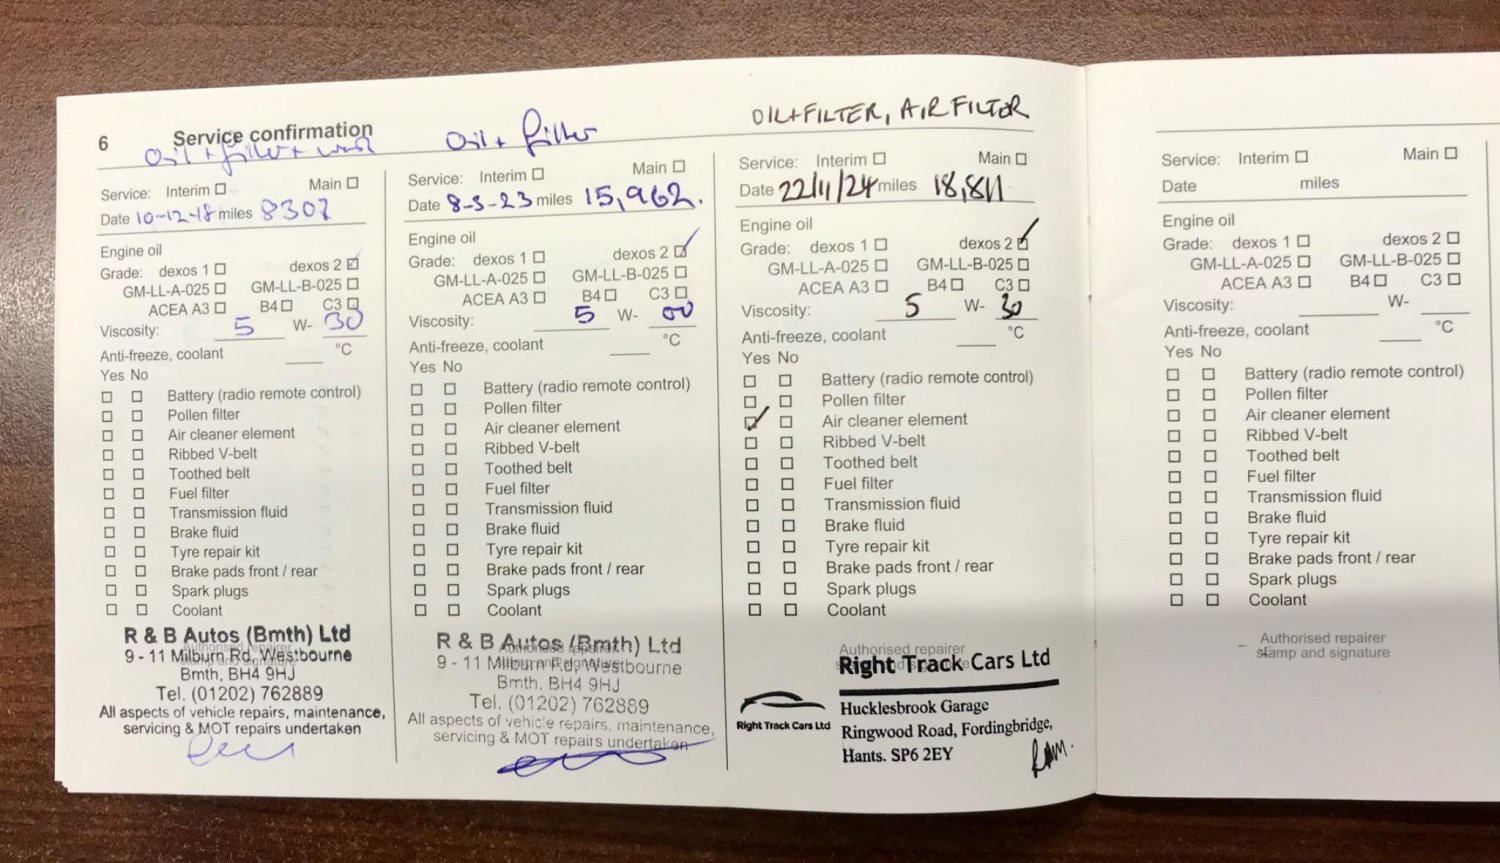 6 Service confirmation
Oil + filter +
Service: Interim ☐ Main ☐
Date 10-12-18 miles 8307
Engine oil
Grade: dexos 1 ☐ dexos 2 ☑
GM-LL-A-025 ☐ GM-LL-B-025 ☐
ACEA A3 ☐ B4 ☐ C3 ☐
Viscosity: 5 W- 30
Anti-freeze, coolant °C
Yes No
☐ ☐ Battery (radio remote control)
☐ ☐ Pollen filter
☐ ☐ Air cleaner element
☐ ☐ Ribbed V-belt
☐ ☐ Toothed belt
☐ ☐ Fuel filter
☐ ☐ Transmission fluid
☐ ☐ Brake fluid
☐ ☐ Tyre repair kit
☐ ☐ Brake pads front / rear
☐ ☐ Spark plugs
☐ ☐ Coolant
Authorised repairer
stamp and signature
R & B Autos (Bmth) Ltd
9 - 11 Milburn Rd, Westbourne
Bmth, BH4 9HJ
Tel. (01202) 762889
All aspects of vehicle repairs, maintenance,
servicing & MOT repairs undertaken
Oil + filter
Service: Interim ☐ Main ☐
Date 8-3-23 miles 15,962.
Engine oil
Grade: dexos 1 ☐ dexos 2 ☑
GM-LL-A-025 ☐ GM-LL-B-025 ☐
ACEA A3 ☐ B4 ☐ C3 ☐
Viscosity: 5 W-
Anti-freeze, coolant °C
Yes No
☐ ☐ Battery (radio remote control)
☐ ☐ Pollen filter
☐ ☐ Air cleaner element
☐ ☐ Ribbed V-belt
☐ ☐ Toothed belt
☐ ☐ Fuel filter
☐ ☐ Transmission fluid
☐ ☐ Brake fluid
☐ ☐ Tyre repair kit
☐ ☐ Brake pads front / rear
☐ ☐ Spark plugs
☐ ☐ Coolant
Authorised repairer
stamp and signature
R & B Autos (Bmth) Ltd
9 - 11 Milburn Rd, Westbourne
Bmth, BH4 9HJ
Tel. (01202) 762889
All aspects of vehicle repairs, maintenance,
servicing & MOT repairs undertaken
OIL+FILTER, AIR FILTOR
Service: Interim ☐ Main ☐
Date 22/11/24 miles 18,811
Engine oil
Grade: dexos 1 ☐ dexos 2 ☑
GM-LL-A-025 ☐ GM-LL-B-025 ☐
ACEA A3 ☐ B4 ☐ C3 ☐
Viscosity: 5 W- 30
Anti-freeze, coolant °C
Yes No
☐ ☐ Battery (radio remote control)
☐ ☐ Pollen filter
☑ ☐ Air cleaner element
☐ ☐ Ribbed V-belt
☐ ☐ Toothed belt
☐ ☐ Fuel filter
☐ ☐ Transmission fluid
☐ ☐ Brake fluid
☐ ☐ Tyre repair kit
☐ ☐ Brake pads front / rear
☐ ☐ Spark plugs
☐ ☐ Coolant
Authorised repairer
stamp and signature
Right Track Cars Ltd
Right Track Cars Ltd
Hucklesbrook Garage
Ringwood Road, Fordingbridge,
Hants. SP6 2EY
Service: Interim ☐ Main ☐
Date miles
Engine oil
Grade: dexos 1 ☐ dexos 2 ☐
GM-LL-A-025 ☐ GM-LL-B-025 ☐
ACEA A3 ☐ B4 ☐ C3 ☐
Viscosity: W-
Anti-freeze, coolant °C
Yes No
☐ ☐ Battery (radio remote control)
☐ ☐ Pollen filter
☐ ☐ Air cleaner element
☐ ☐ Ribbed V-belt
☐ ☐ Toothed belt
☐ ☐ Fuel filter
☐ ☐ Transmission fluid
☐ ☐ Brake fluid
☐ ☐ Tyre repair kit
☐ ☐ Brake pads front / rear
☐ ☐ Spark plugs
☐ ☐ Coolant
Authorised repairer
stamp and signature